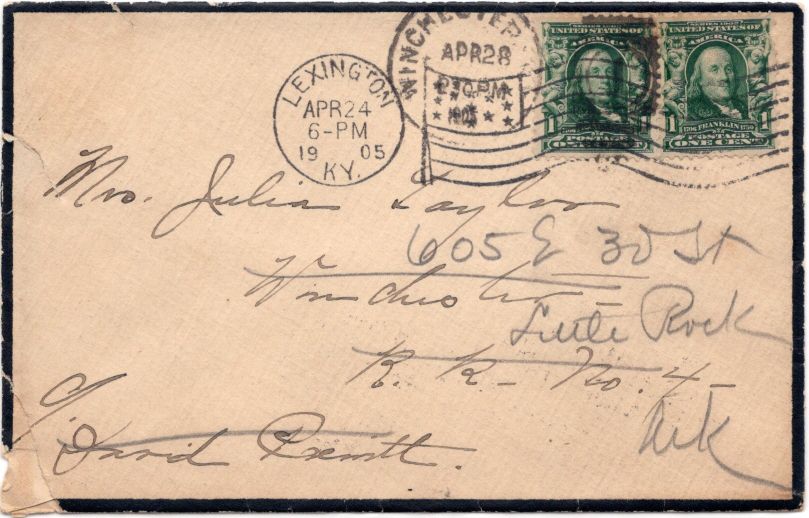 LEXINGTON
APR 24
6-PM
19 05
KY.
WINCHESTER
APR 28
2 30 PM
1905
SERIES 1902
UNITED STATES OF
AMERICA
1 1
POSTAGE
SERIES 1902
UNITED STATES OF
AMERICA
1706 FRANKLIN 1790
1 1
POSTAGE
ONE CENT
Mrs. Julia Taylor
605 E 30 St
Winchester
Little Rock
R. R. No. 4
Ark
c/o
David Prewitt.